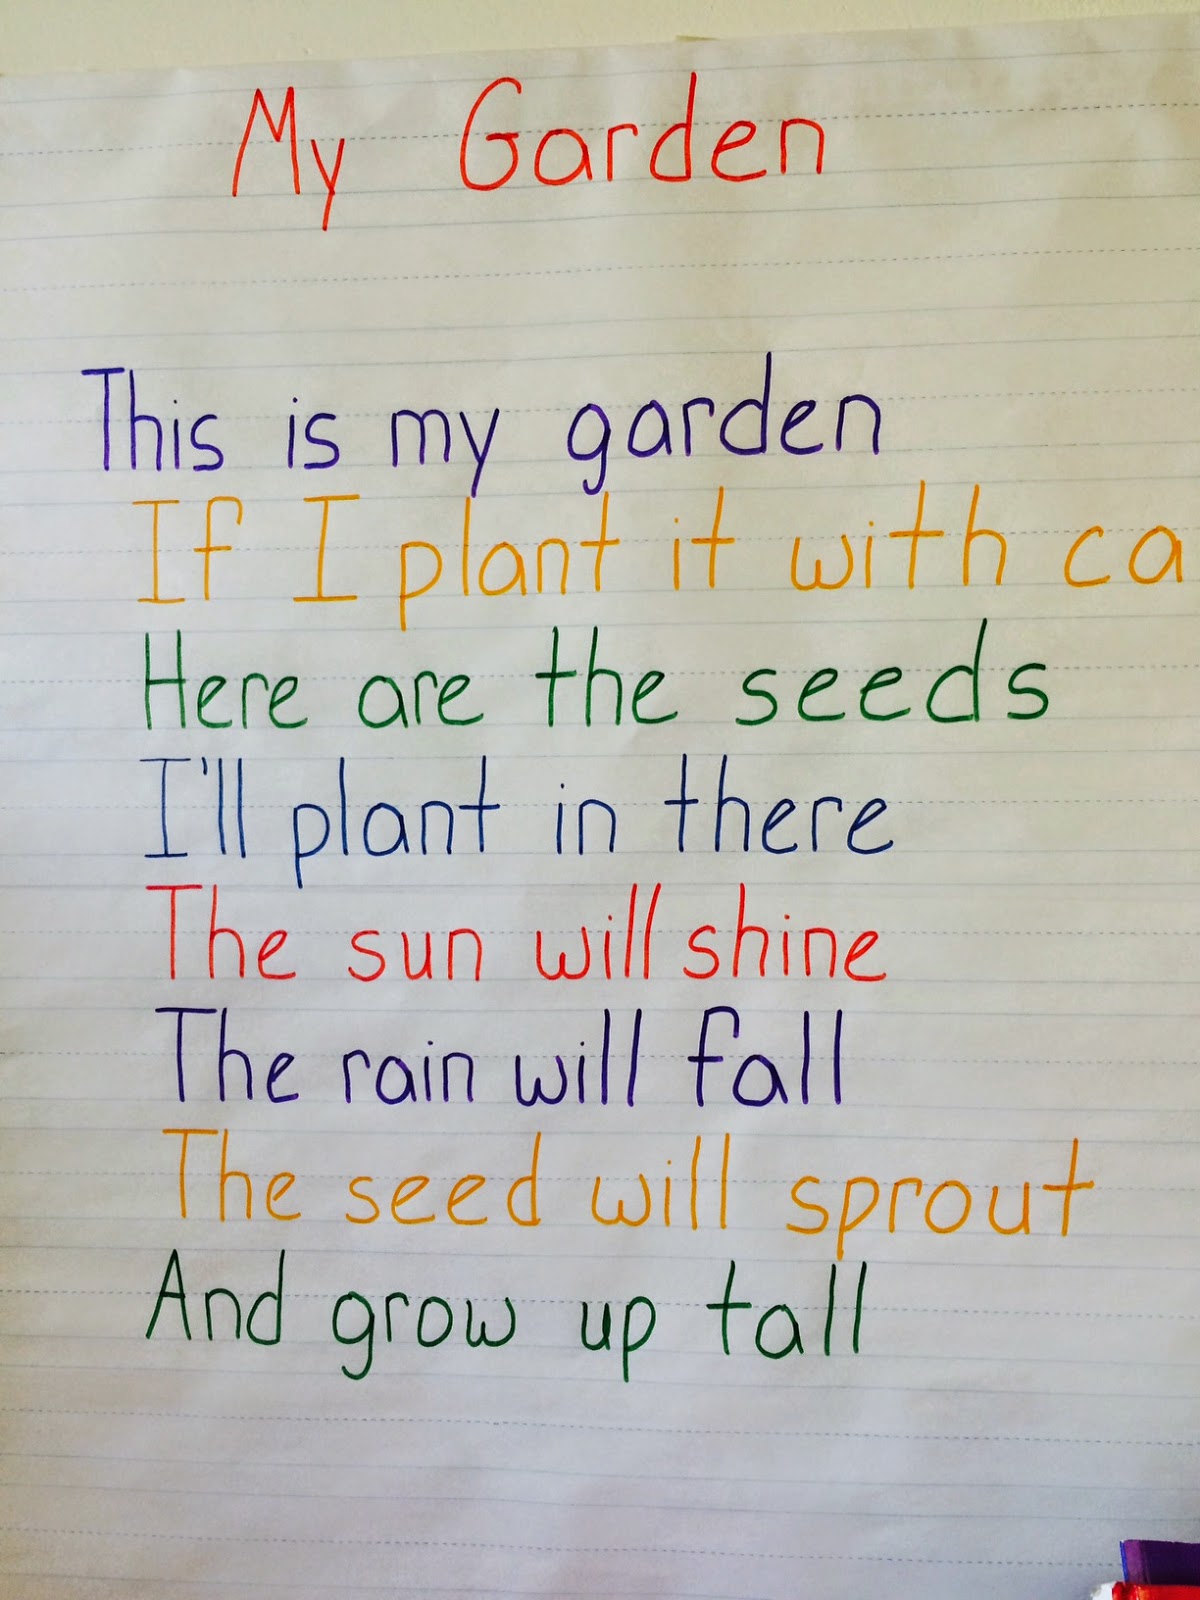 My Garden
This is my garden
If I plant it with ca
Here are the seeds
I'll plant in there
The sun will shine
The rain will fall
The seed will sprout
And grow up tall